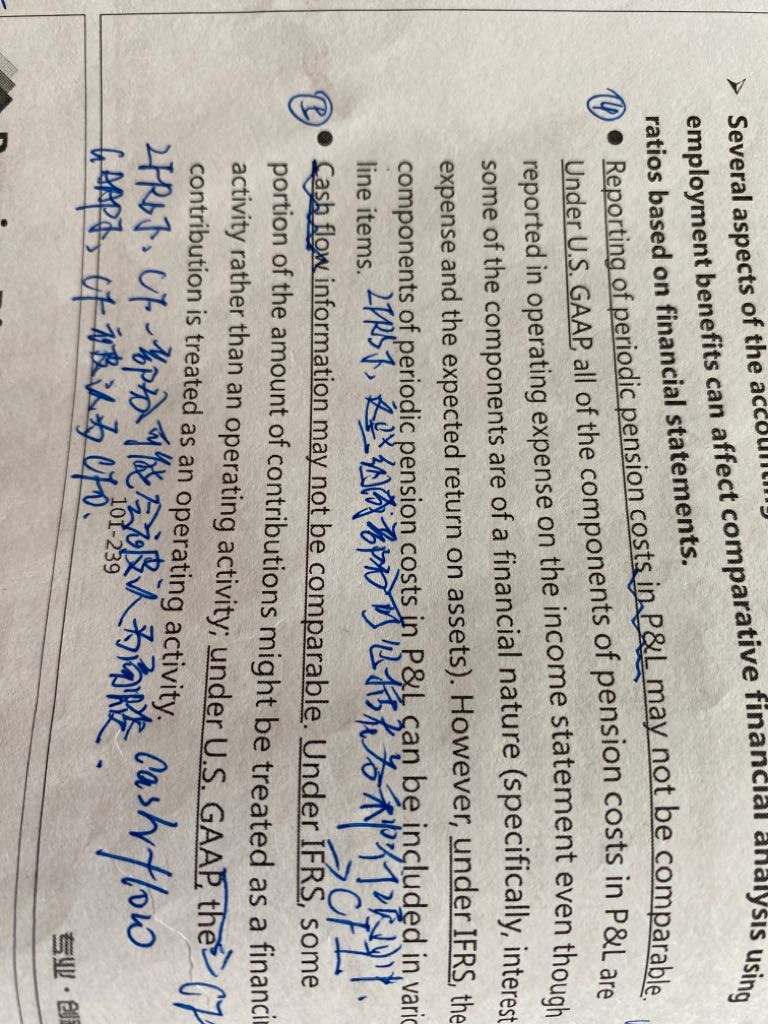 Several aspects of the accounting
employment benefits can affect comparative financial analysis using
ratios based on financial statements.
⑭ • Reporting of periodic pension costs in P&L may not be comparable.
Under U.S. GAAP, all of the components of pension costs in P&L are
reported in operating expense on the income statement even though
some of the components are of a financial nature (specifically, interest
expense and the expected return on assets). However, under IFRS, the
components of periodic pension costs in P&L can be included in vario
line items. 在IFRS下，这些组成部分可以包括在各种行项目中.
→CFI
⑮ • Cash flow information may not be comparable. Under IFRS, some
portion of the amount of contributions might be treated as a financi
activity rather than an operating activity; under U.S. GAAP, the
contribution is treated as an operating activity.
在IFRS下，CF一部分可能会被认为 cash flow
GAAP下，CF被认为CFO.
101-239
专业·创